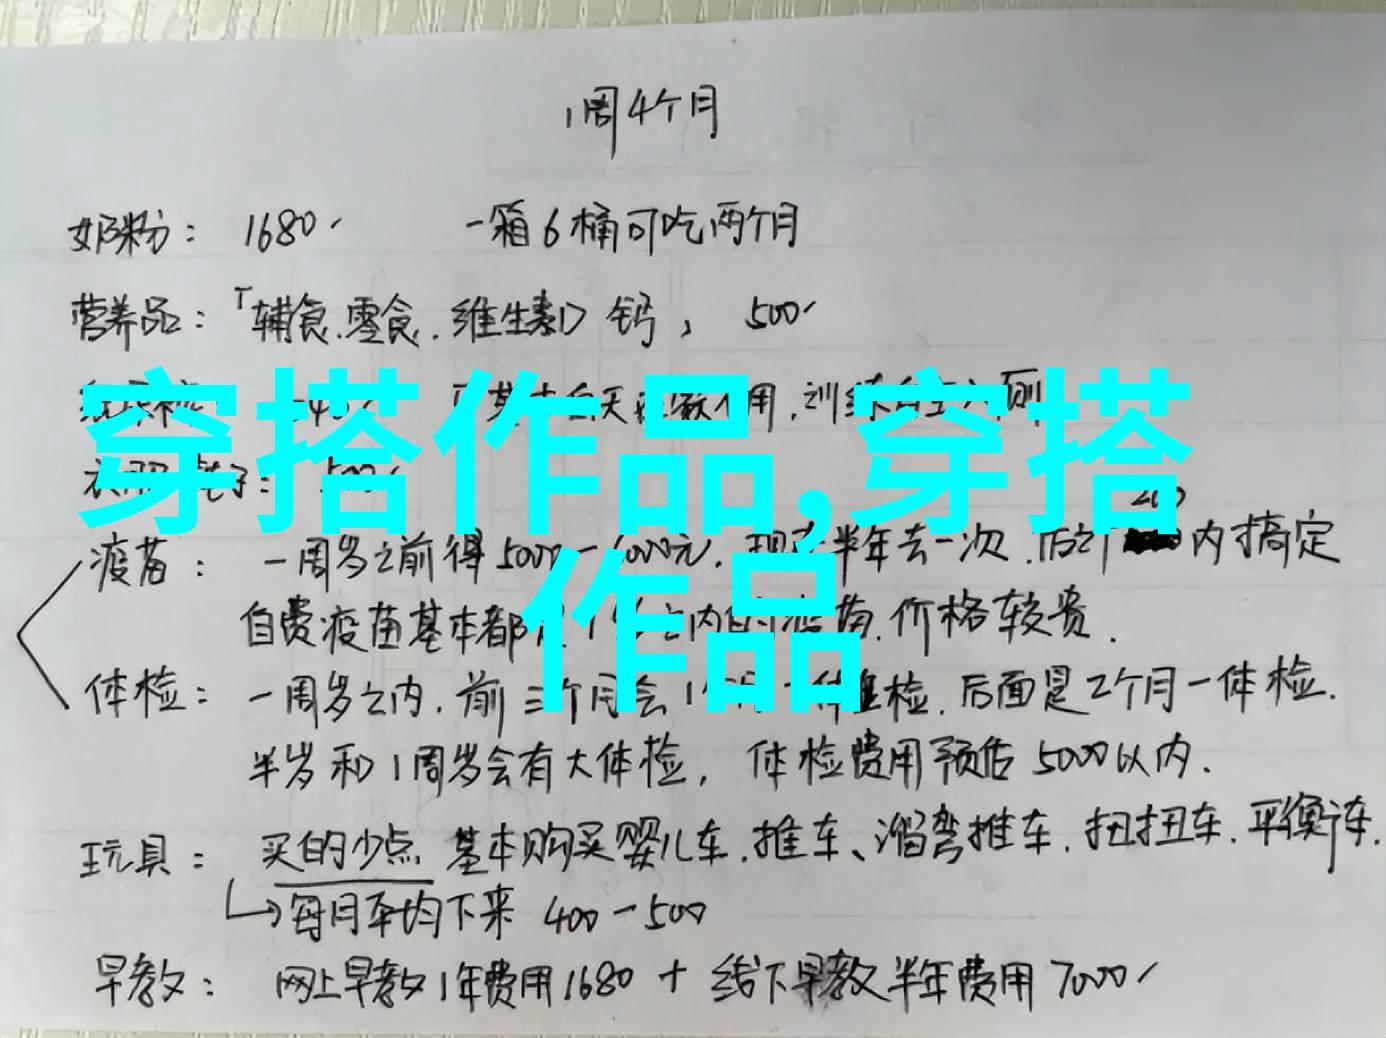 1周4个月
奶粉： 1680 一箱6桶可吃两个月
营养品：「辅食.零食.维生素D 钙， 500
天 用.训练
穿搭作品,穿搭
作品
200
疫苗： 一周岁之前得5000-6000元. 半年去一次. 内搞定
自费疫苗基本都 之内的疫苗.价格较贵.
体检： 一周岁之内.前三个月会1个月一体检.后面是2个月一体检.
半岁和1周岁会有大体检， 体检费用预估5000以内.
玩具： 买的少点 基本购买婴儿车.推车、溜弯推车.扭扭车.平衡车.
每月平均下来 400-500
早教： 网上早教1年费用1680 + 线下早教半年费用7000